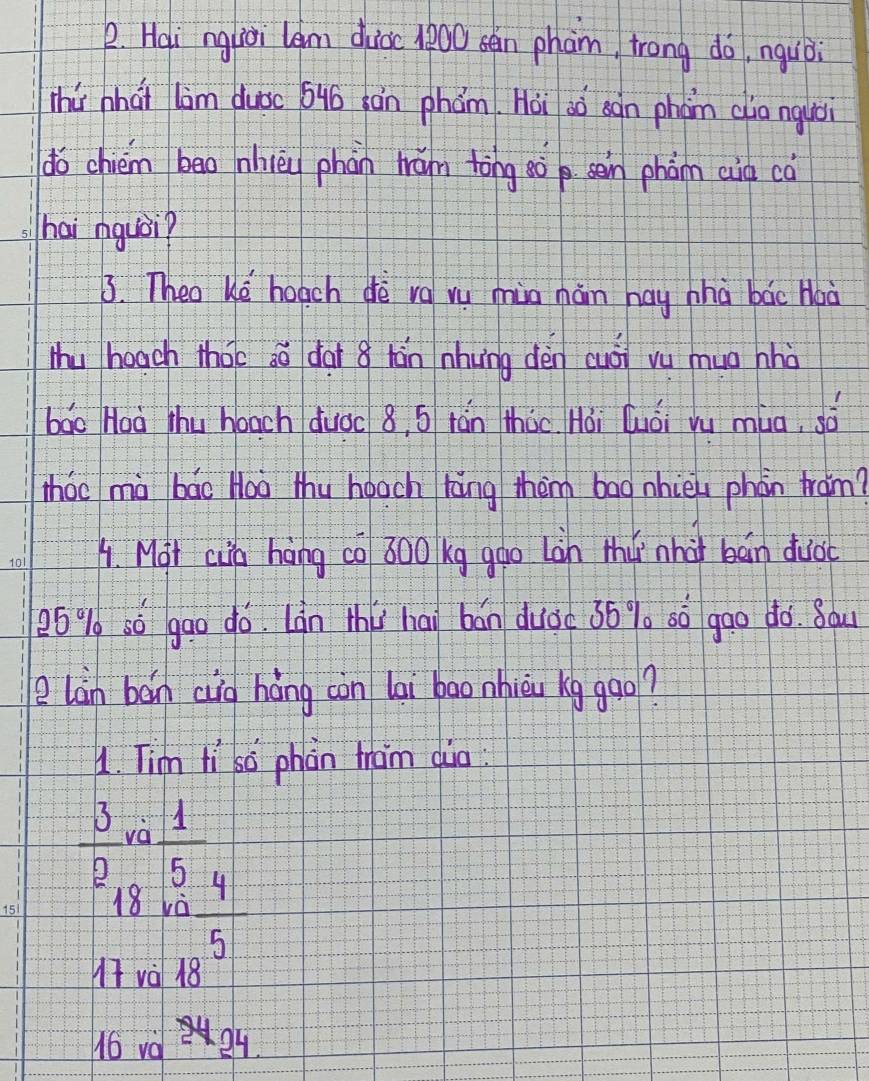 2. Hai người làm được 1200 sản phẩm, trong đó, người
thứ nhất làm được 546 sản phẩm. Hỏi số sản phẩm của người
đó chiếm bao nhiêu phần trăm tổng số p. sản phẩm của cả
hai người?
3. Theo kế hoạch đề ra vụ mùa năm nay nhà bác Hoà
thu hoạch thóc sẽ đạt 8 tấn nhưng đến cuối vụ mùa nhà
bác Hoà thu hoạch được 8,5 tấn thóc. Hỏi cuối vụ mùa, số
thóc mà bác Hoà thu hoạch tăng thêm bao nhiêu phần trăm?
4. Một cửa hàng có 300 kg gạo lần thứ nhất bán được
25% số gạo đó. Lần thứ hai bán được 35% số gạo đó. Sau
2 lần bán cửa hàng còn lại bao nhiêu kg gạo?
1. Tìm tỉ số phần trăm của:
3/2 và 1/5
18 và 4/5
17 và 18
16 và 24 24.